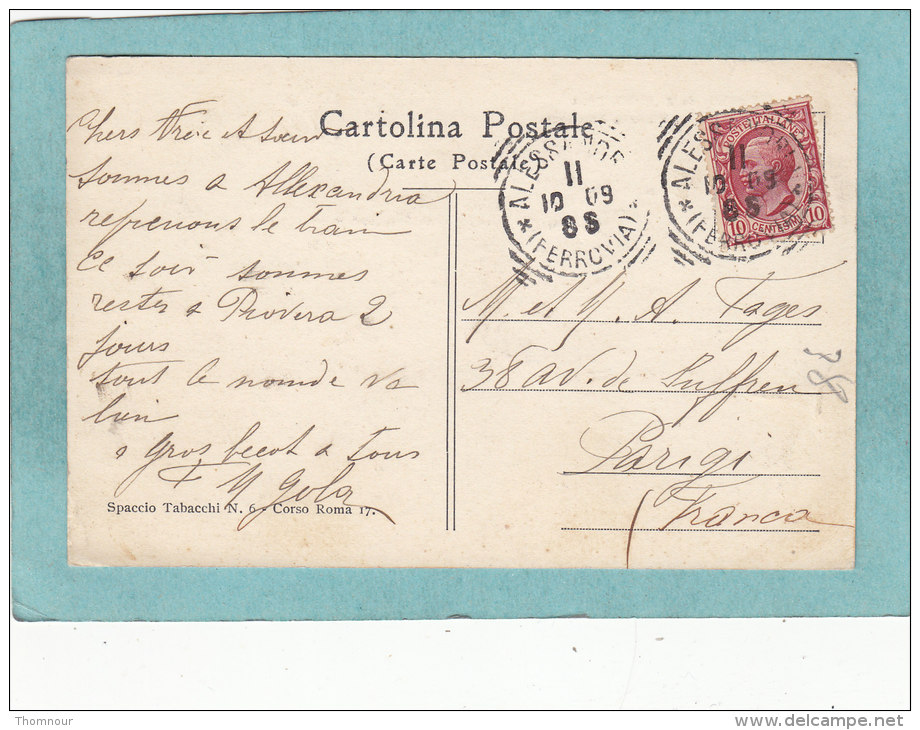 Cartolina Postale
(Carte Postale)
Chers frère et soeur
sommes a Allexandria
reprenons le train
Ce soir sommes
restes a Piovera 2
jours
tout le monde va
bien
gros becot a tous
M Gola
Spaccio Tabacchi N. 6 - Corso Roma 17.
ALESSANDR
11
10 09
8 S
(FERROVIA)
ALESS
11
10 09
8 S
(FERRO
POSTE ITALIANE
10 CENTESIMI 10
M. et M. A. Fages
38 av. de Suffren
Parigi
(Franca
Thomnour
www.delcampe.net